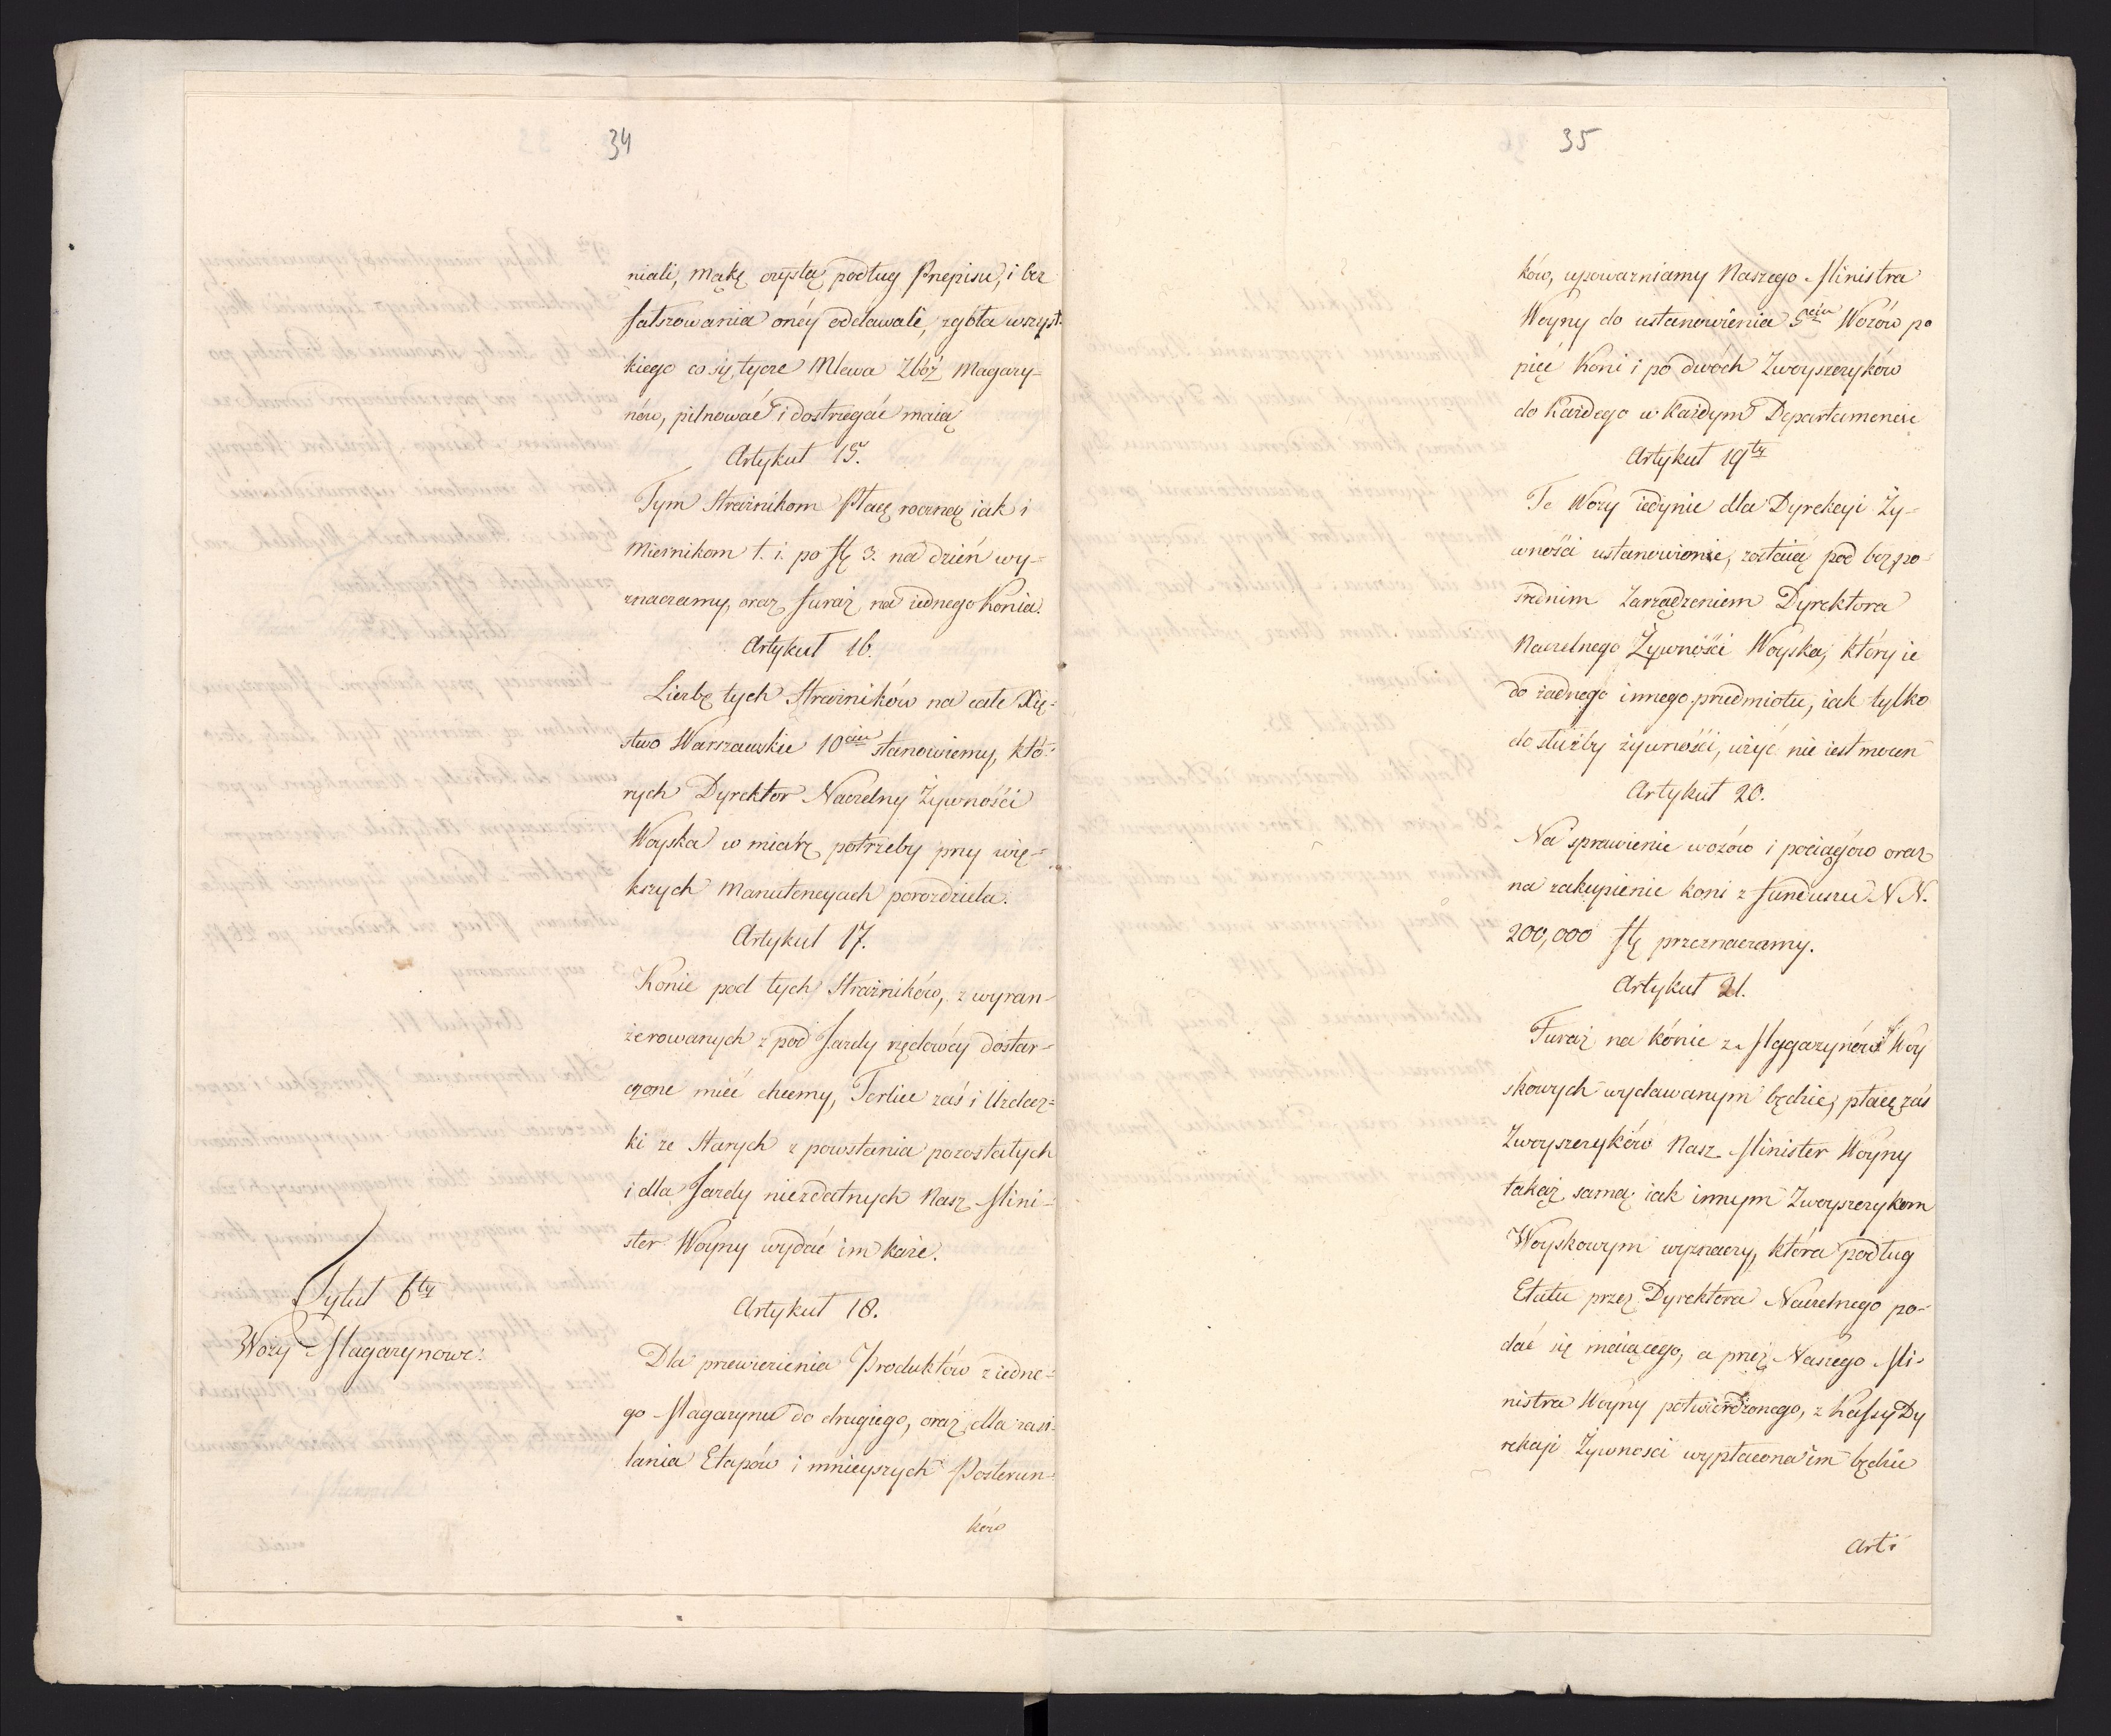 34
niali, mąkę czystą podług Przepisu, i bez
fałszowania onéy oddawali, zgoła wszyst-
kiego co się tycze Mlewa Zbóż Magazy-
nów, pilnować i dostrzegać maią
Artykuł 15.
Tym Strażnikom Płacę roczną iak i
Miernikom t. i. po fl 3. na dzień wy-
znaczamy, oraz furaż na iednego Konia.
Artykuł 16.
Liczbę tych Strażników na całe Xię-
stwo Warszawskie 10ciu stanowiemy, któ-
rych Dyrektor Naczelny Żywności
Woyska w miarę potrzeby przy wię-
kszych Manutencyach porozdziela.
Artykuł 17.
Konie pod tych Strażników, z wyran-
żerowanych z pod Jazdy rzędowéy dostar-
czone mieć chcemy, Terlice zaś i Uzdecz-
ki ze Starych z powstania pozostałych
i dla Jazdy niezdatnych Nasz Mini-
ster Woyny wydać im każe.
Tytuł 6ty
Wozy Magazynowe.
Artykuł 18.
Dla przewiezienia Produktów z iedne-
go Magazynu do drugiego, oraz dla zasi-
lania Etapów i mnieyszych Posterun-
ków
35
ków, upoważniamy Naszego Ministra
Woyny do ustanowienia 5ciu Wozów po
pięć Koni i po dwóch Zwoyszczyków
do każdego w każdym Departamencie
Artykuł 19ty
Te Wozy iedynie dla Dyrekcyi Ży-
wności ustanowione, zostaią pod bezpo-
średnim Zarządzeniem Dyrektora
Naczelnego Żywności Woyska, który ie
do żadnego innego przedmiotu, iak tylko
do służby żywności, użyć nie iest mocen
Artykuł 20.
Na sprawienie wozów i pociągów oraz
na zakupienie koni z funduszu N N.
200,000 fl przeznaczamy.
Artykuł 21.
Furaż na konie z Magazynów Woy
skowych wydawanym będzie, płacę zaś
Zwoyszczyków Nasz Minister Woyny
takąż samą iak innym Zwoyszczykom
Woyskowym wyznaczy, która podług
Etatu przez Dyrektora Naczelnego po-
dać się maiącego, a przez Naszego Mi-
nistra Woyny potwierdzonego, z Kassy Dy
rekcyi Żywności wypłacona im będzie
Arti